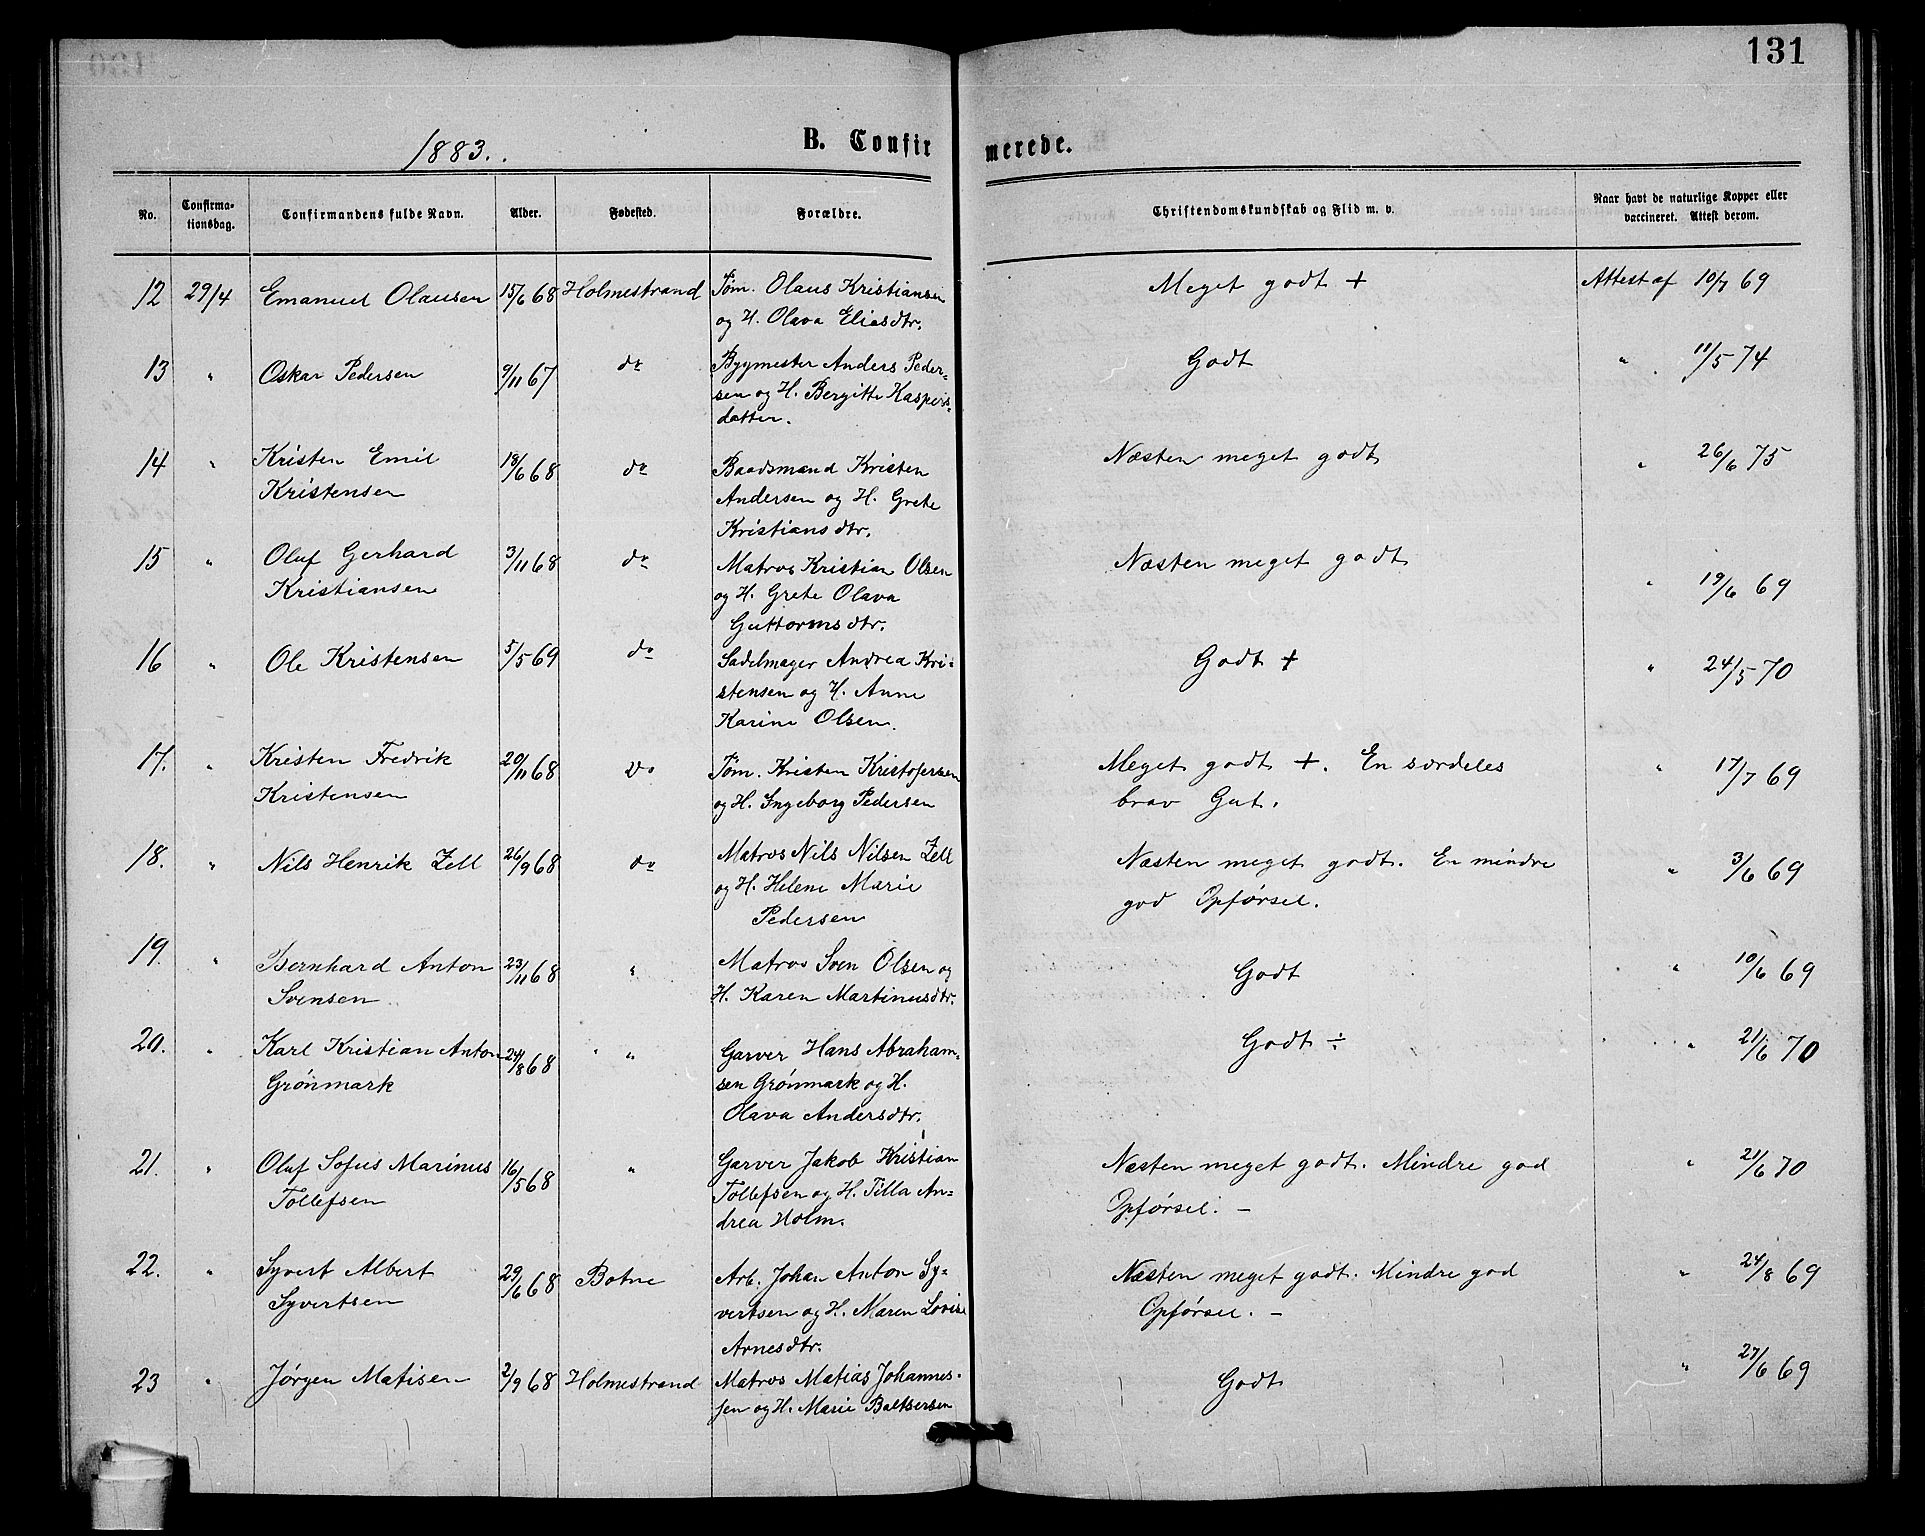 131
1883.
B. Confirmerede.
No. Confirmationsdag. Confirmandens fulde Navn. Alder. Fødested. Forældre. Christendomskundskab og Flid m. v. Naar havt de naturlige Kopper eller vaccineret. Attest derom.
12 29/4 Emanuel Olausen 15/6 68 Holmestrand Tøm. Olaus Kristiansen Meget godt + Attest af 10/7 69
og H. Olava Eliasdtr.
13 " Oskar Pedersen 9/11 67 do Bygmester Anders Peder- Godt " 11/5 74
sen og H. Bergitte Kaspers-
datter.
14 " Kristen Emil 18/6 68 do Baadsmand Kristen Næsten meget godt " 26/6 75
Kristensen Andersen og H. Grete
Kristiansdtr.
15 " Oluf Gerhard 3/11 68 do Matros Kristian Olsen Næsten meget godt " 19/6 69
Kristiansen og H. Grete Olava
Guttormsdtr.
16 " Ole Kristensen 5/5 69 do Sadelmager Andrea Kri- Godt + " 24/5 70
stensen og H. Anne
Karine Olsen.
17. " Kristen Fredrik 20/11 68 do Tøm. Kristen Kristofersen Meget godt +. En særdeles " 17/7 69
Kristensen og H. Ingeborg Pedersen brav Gut.
18. " Nils Henrik Zell 26/9 68 do Matros Nils Nilsen Zell Næsten meget godt. En mindre " 3/6 69
og H. Helene Marie god Opførsel.
Pedersen
19. " Bernhard Anton 23/11 68 " Matros Sven Olsen og Godt " 10/6 69
Svensen H. Karen Martinusdtr.
20. " Karl Kristian Anton 24/8 68 " Garver Hans Abraham- Godt ÷ " 21/6 70
Grønmark sen Grønmark og H.
Olava Andersdtr.
21. " Oluf Sofus Marinus 16/5 68 " Garver Jakob Kristian Næsten meget godt. Mindre god " 21/6 70
Tollefsen Tollefsen og H. Tilla An- Opførsel. –
drea Holm.
22. " Syvert Albert 29/6 68 Botne Arb. Johan Anton Sy- Næsten meget godt. Mindre god " 24/8 69
Syvertsen vertsen og H. Maren Lovise Opførsel. –
Arnesdtr.
23 " Jørgen Matisen 2/9 68 Holmestrand Matros Matias Johannes- Godt " 27/6 69
sen og H. Marie Baltsersen